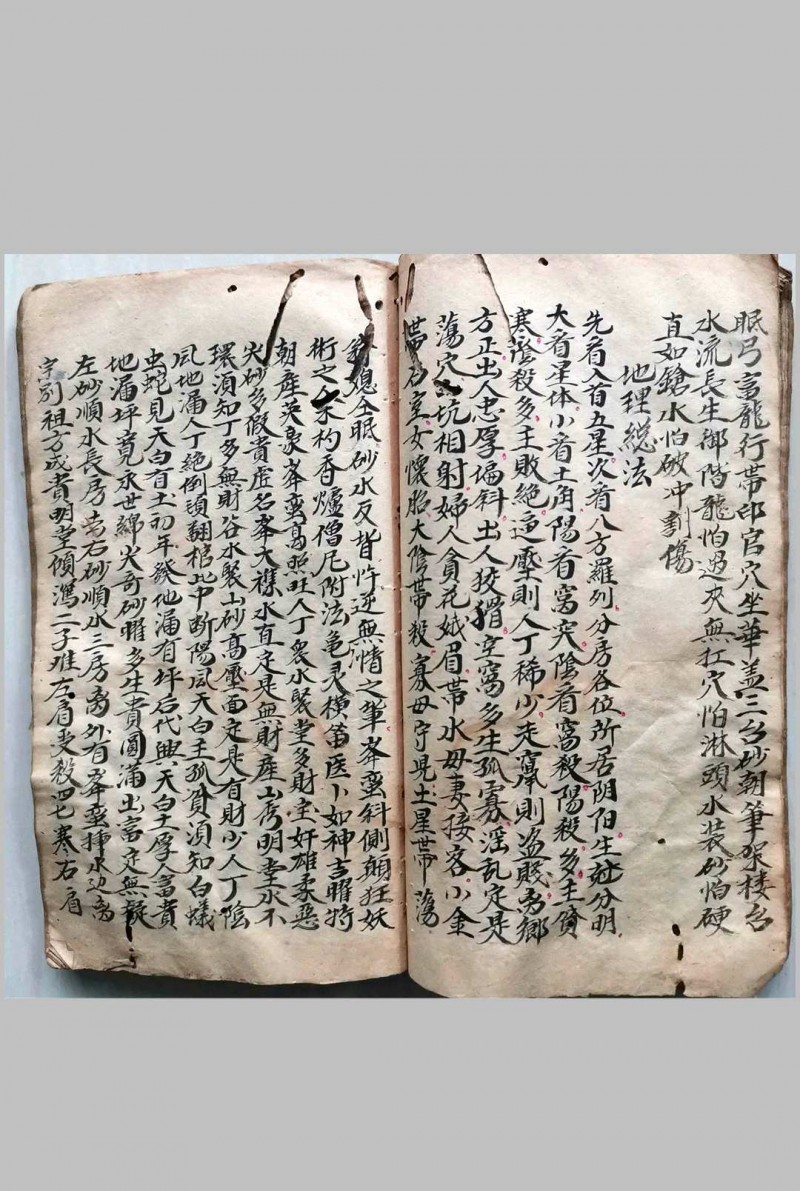 眠弓富龍行帶印官穴坐華盖三台砂朝筆架楼台
水流長生御階龍怕過夾無扛穴怕淋頭水裝砂怕硬
直如鎗水怕破冲割傷
地理總法
先看入首五星次看八方羅列分房各位所居阴阳生尅分明
大看星体小看土角陽看窩突陰看窩殺陽殺多主貧
寒陰殺多主敗絕逼壓則人丁稀少走竄則盗賤离鄉
方正出人忠厚偏斜出人狡猾空窩多生孤寡淫乱定是
蕩穴坑相射婦人貪花娥眉帶水母妻接客小金
帶石室女懷胎大陰帶殺寡母守見土星帶蕩
翁媳仝眠砂水反背忤逆無情之筆峯巒斜側顛狂妖
術之木杓香爐僧尼附法龟灵橫笛医卜如神吉曜特
朝産英豪峯巒高照旺人丁衆水聚堂多財宝奸雄柔惡
尖砂多假貴虛名峯大襟水直定是無財産山秀明堂水不
環須知丁多無財谷水聚山砂高壓面定是有財少人丁陰
風地漏人丁絕倒頭翻棺此中断陽風天白主孤貧須知白蟻
虫蛇見天白有土初年發地漏有坪后代興天白土厚人富貴
地漏坪寬永世綿尖奇砂曜多生貴圓滿出富定無疑
左砂順水長房离右砂順水三房离外有峯巒插水边离
宗别祖方成貴明堂傾瀉二子难左肩受殺四七寒右肩